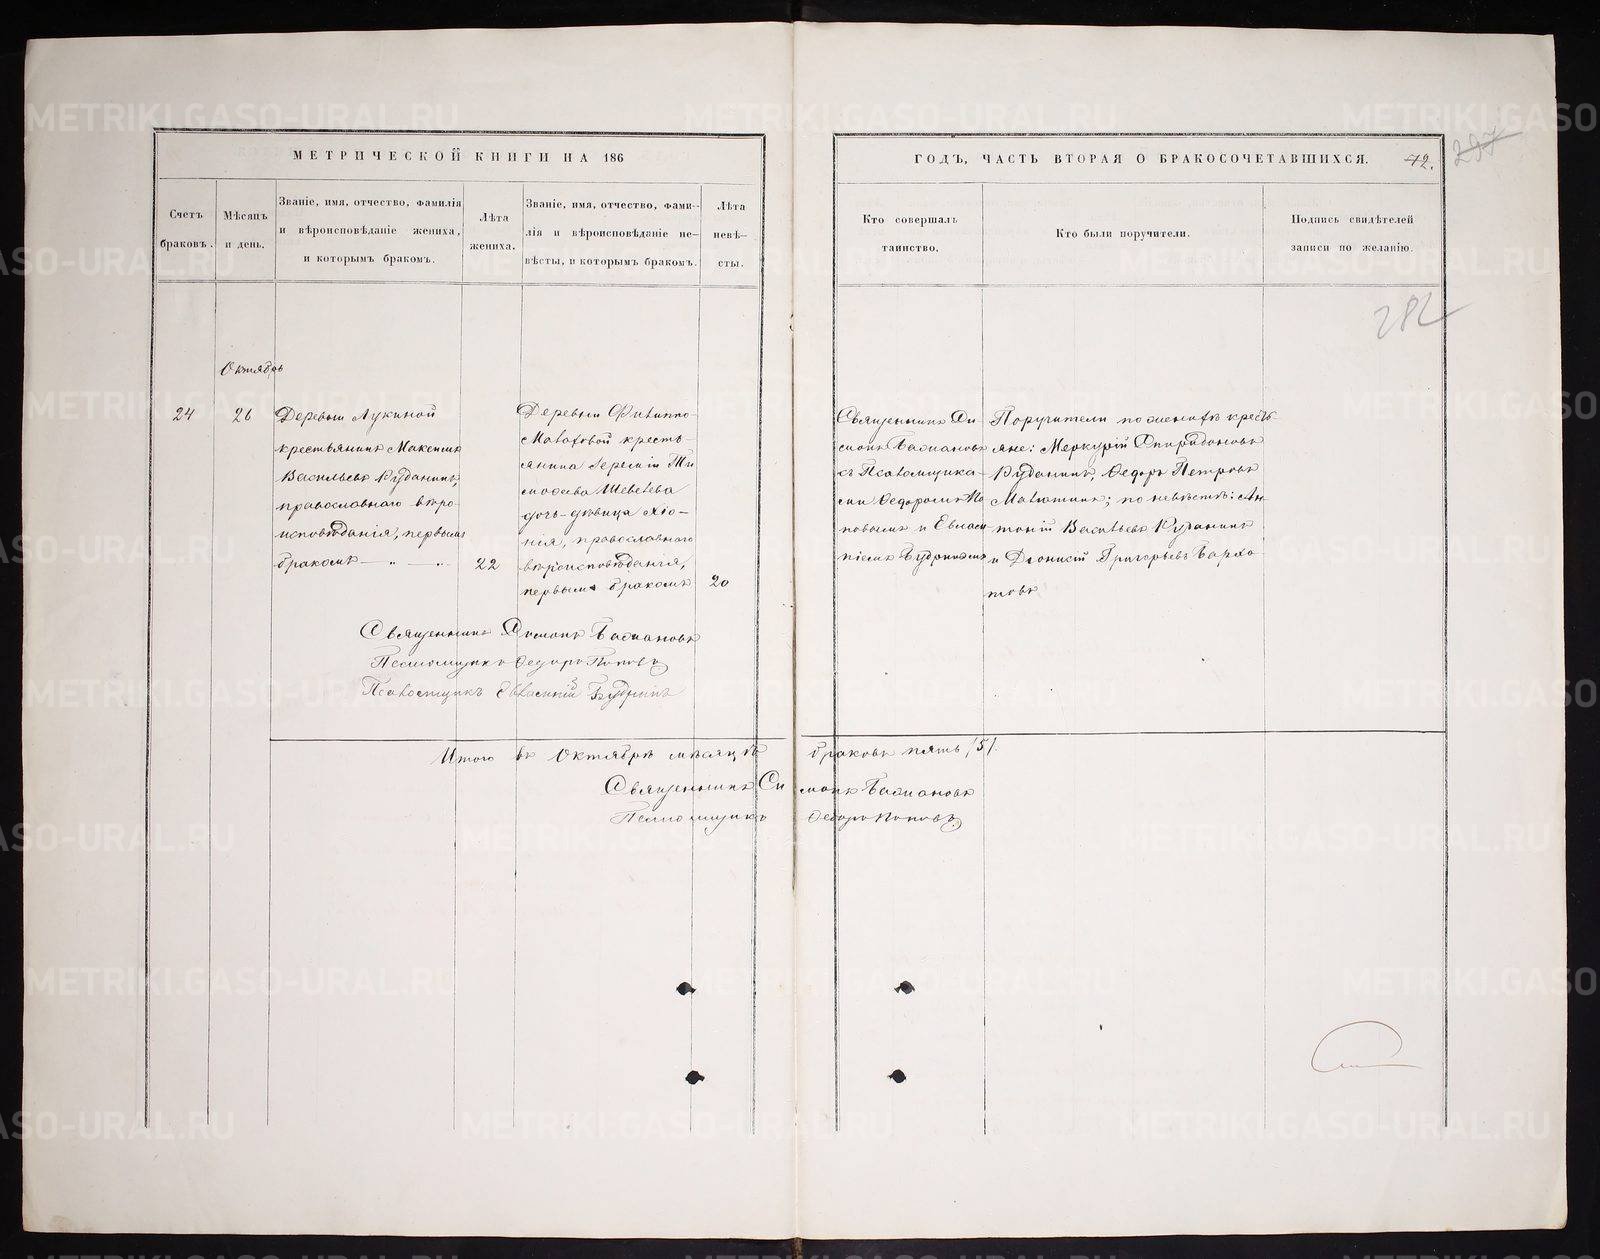 МЕТРИЧЕСКОЙ КНИГИ НА 186
ГОДЪ, ЧАСТЬ ВТОРАЯ О БРАКОСОЧЕТАВШИХСЯ.
72.
297
Счетъ
браковъ.
Мѣсяцъ
и день.
Званіе, имя, отчество, фамилія
и вѣроисповѣданіе жениха,
и которымъ бракомъ.
Лѣта
жениха.
Званіе, имя, отчество, фами-
лія и вѣроисповѣданіе не-
вѣсты, и которымъ бракомъ.
Лѣта
невѣ-
сты.
Кто совершалъ
таинство.
Кто были поручители.
Подпись свидѣтелей
записи по желанію.
282
Октябрь
24
26
Деревни Лукиной
крестьянинъ Максимъ
Васильевъ Руданинъ,
православнаго вѣро-
исповѣданія, первымъ
бракомъ — „ — „
22
Деревни Филиппо-
крестъ-
янина Терентія Ти
моѳеева Шевелева
дочь-дѣвица
нія, православнаго
вѣроисповѣданія,
первымъ бракомъ
20
Священникъ Си
монъ Баснановъ
съ Псаломщика-
ми Ѳедоромъ По
повымъ и Евлам
піемъ Будринымъ
Поручители по женихѣ кресть-
яне: Меркурій Спиридоновъ
Руданинъ, Ѳедоръ Петровъ
Малютинъ; по невѣстѣ: Ан
тоній Васильевъ
и Діонисій Григорьевъ Бархо
товъ
Священникъ Симонъ Баснановъ
Псаломщикъ Ѳедоръ Поповъ
Псаломщикъ Евлампій Будринъ
Итого въ Октябрѣ мѣсяцѣ браковъ пять /5/.
Священникъ Симонъ Баснановъ
Псаломщикъ Ѳедоръ Поповъ
METRIKI.GASO-URAL.RU